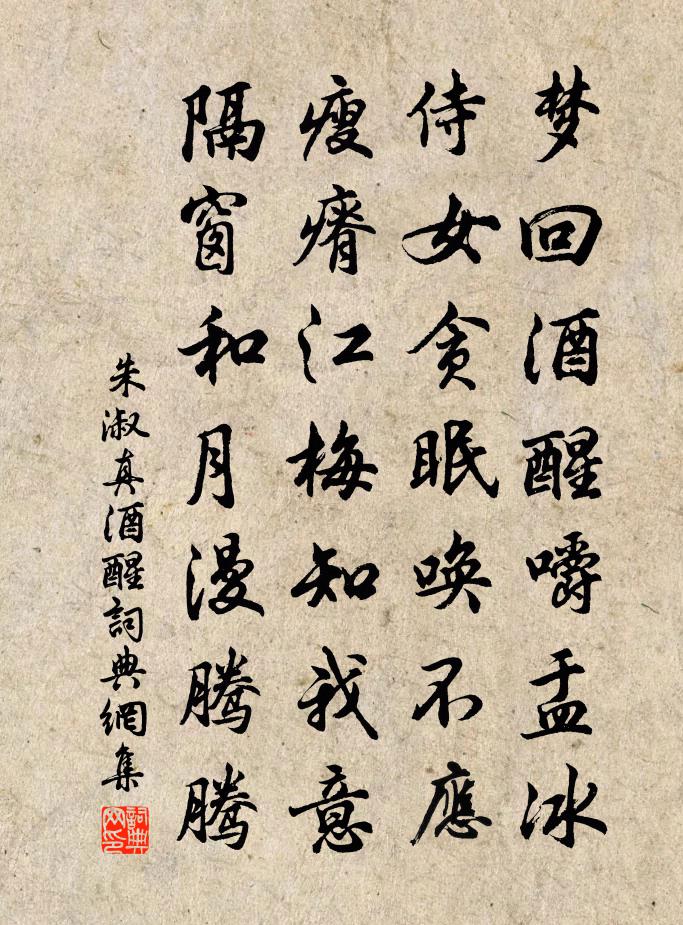 梦回酒醒嚼盂冰
侍女贪眠唤不應
瘦瘠江梅知我意
隔窗和月漫腾腾
朱淑真酒醒詞典網集
詞典网印